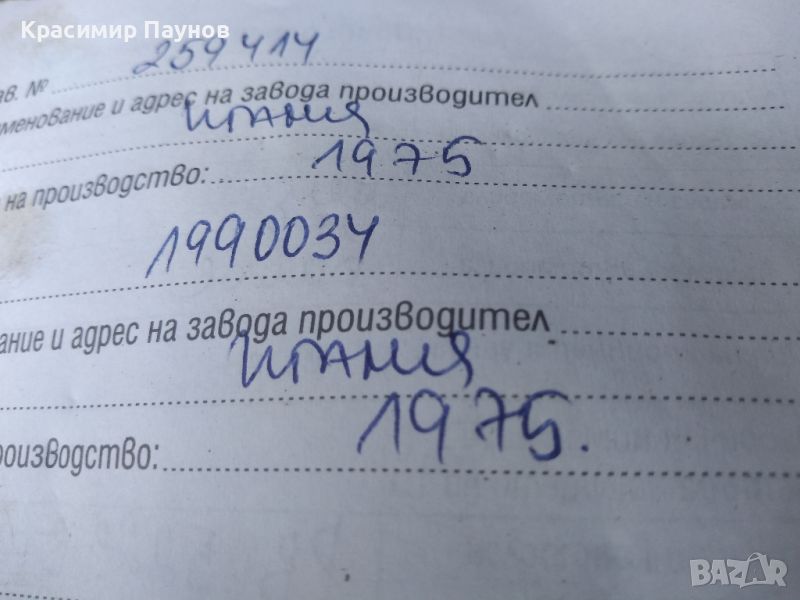 Красимир Паунов
ав. № 259414
именование и адрес на завода производител
Италия
на производство: 1975
1990034
ание и адрес на завода производител
Италия
роизводство: 1975.
BAZAR